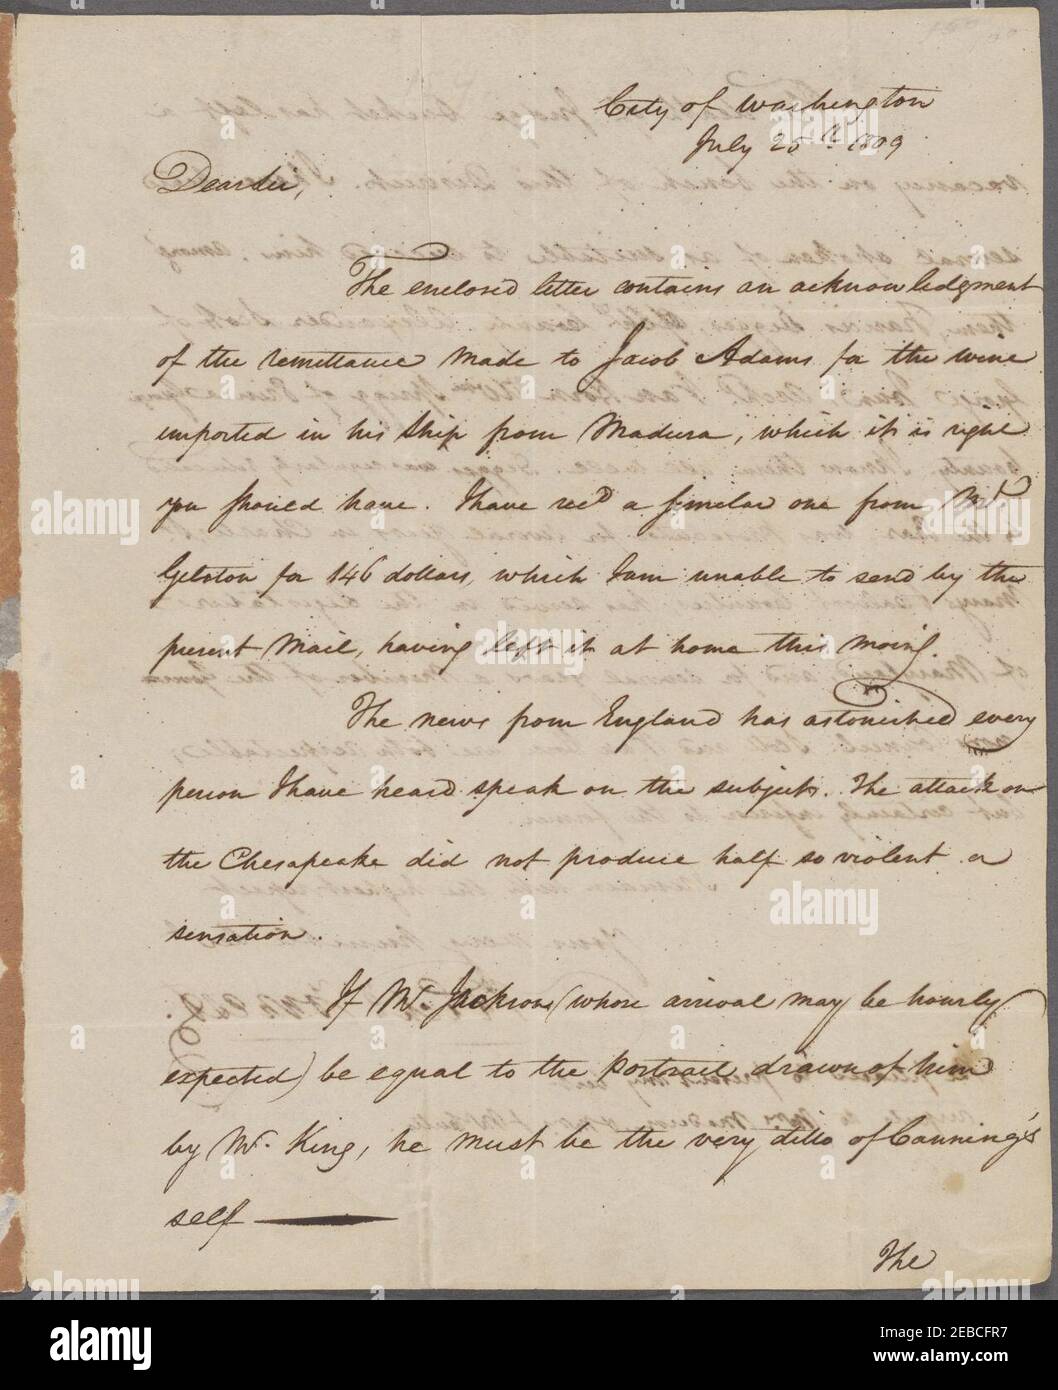 City of Washington
July 25th 1809
Dear sir,
The enclosed letter contains an acknowledgment
of the remittance made to Jacob Adams for the wine
imported in his ship from Madura, which it is right
you should have. I have recd a similar one from Mr
Gelston for 146 dollars, which I am unable to send by the
present Mail, having left it at home this moing.
The news from England has astonished every
person I have heard speak on the subject. The attack on
the Chesapeake did not produce half so violent a
sensation.
If Mr. Jackson (whose arrival may be hourly
expected) be equal to the portrait drawn of him
by Mr. King, he must be the very ditto of Canning's
self
The
alamy
Image ID: 2EBCFR7
www.alamy.com